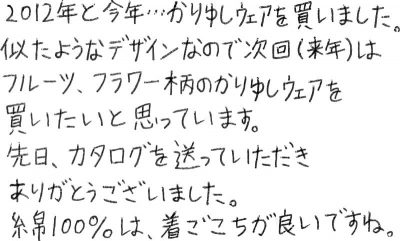 2012年と今年…かりゆしウェアを買いました。
似たようなデザインなので次回(来年)は
フルーツ、フラワー柄のかりゆしウェアを
買いたいと思っています。
先日、カタログを送っていただき
ありがとうございました。
綿100%は、着ごこちが良いですね。